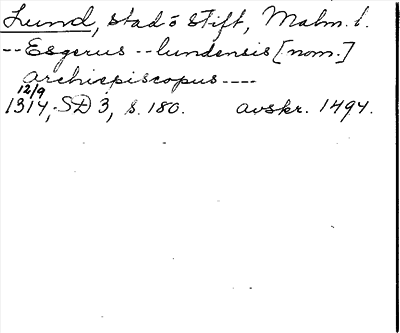 Lund, stad o stift, Malm. l.
-- Esgerus -- lundensis [nom.]
archiepiscopus ----
12/9
1314, SD 3, s. 180. avskr. 1494.